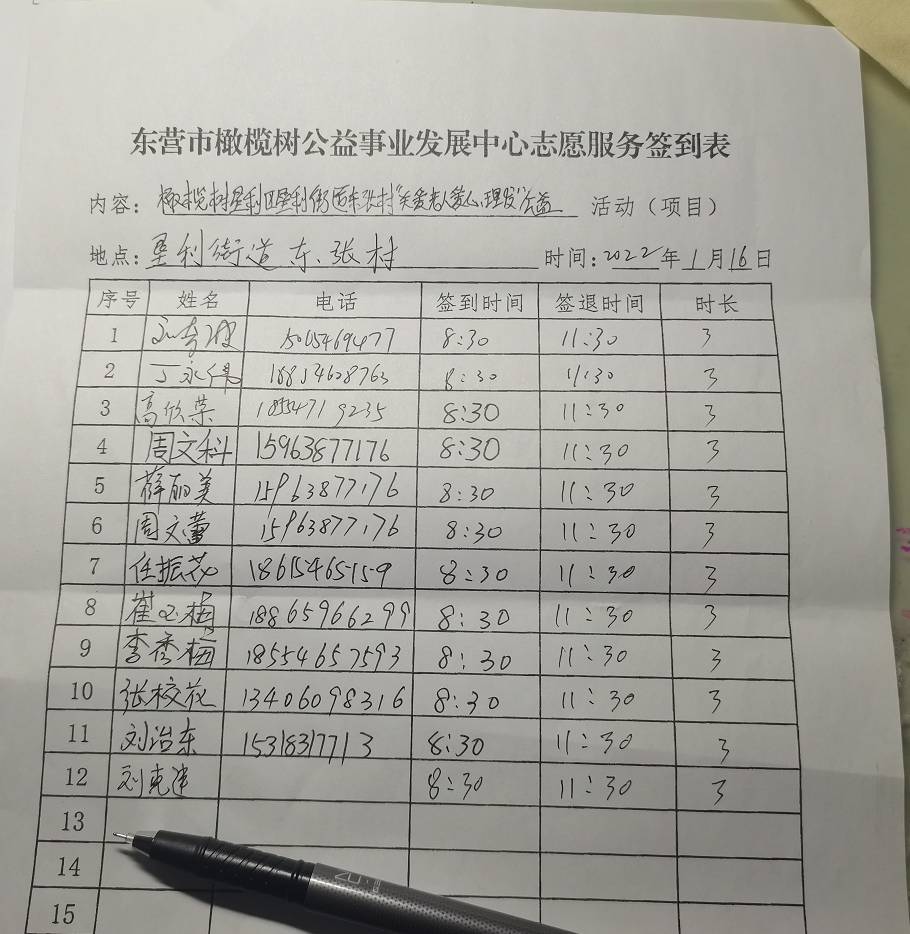 东营市橄榄树公益事业发展中心志愿服务签到表
内容：橄榄树垦利区垦利街道东张村“关爱老人 理发”公益 活动（项目）
地点：垦利街道东张村 时间：2022年1月16日
序号 姓名 电话 签到时间 签退时间 时长
1 8:30 11:30 3
2 丁永伟 8:30 11:30 3
3 高欣荣 18554719235 8:30 11:30 3
4 周文科 15963877176 8:30 11:30 3
5 薛丽美 15963877176 8:30 11:30 3
6 周文蕾 15963877176 8:30 11:30 3
7 任振花 18615465159 8:30 11:30 3
8 崔 梅 18865966299 8:30 11:30 3
9 李秀梅 18554657593 8:30 11:30 3
10 张校花 13406098316 8:30 11:30 3
11 刘治东 15318317713 8:30 11:30 3
12 刘 8:30 11:30 3
13
14
15